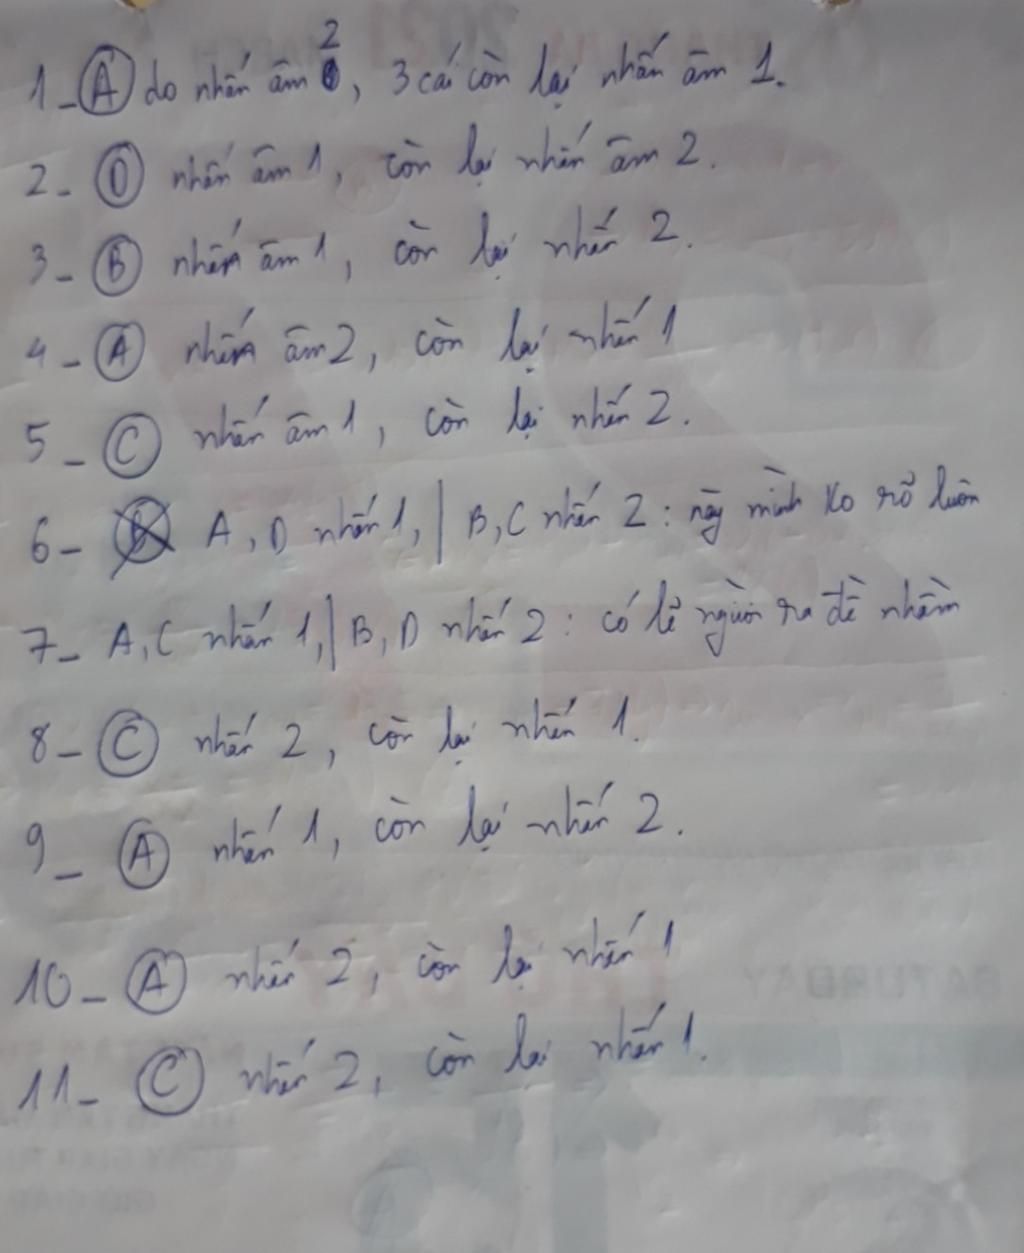 1-Ⓐ do nhấn âm 2, 3 cái còn lại nhấn âm 1.
2- Ⓓ nhấn âm 1, còn lại nhấn âm 2.
3- Ⓑ nhấn âm 1, còn lại nhấn 2.
4-Ⓐ nhấn âm 2, còn lại nhấn 1
5-Ⓒ nhấn âm 1, còn lại nhấn 2.
6- A, D nhấn 1, | B, C nhấn 2: này mình ko rõ luôn
7- A, C nhấn 1, | B, D nhấn 2: có lẽ người ra đề nhầm
8-Ⓒ nhấn 2, còn lại nhấn 1.
9- Ⓐ nhấn 1, còn lại nhấn 2.
10-Ⓐ nhấn 2, còn lại nhấn 1
11-Ⓒ nhấn 2, còn lại nhấn 1.